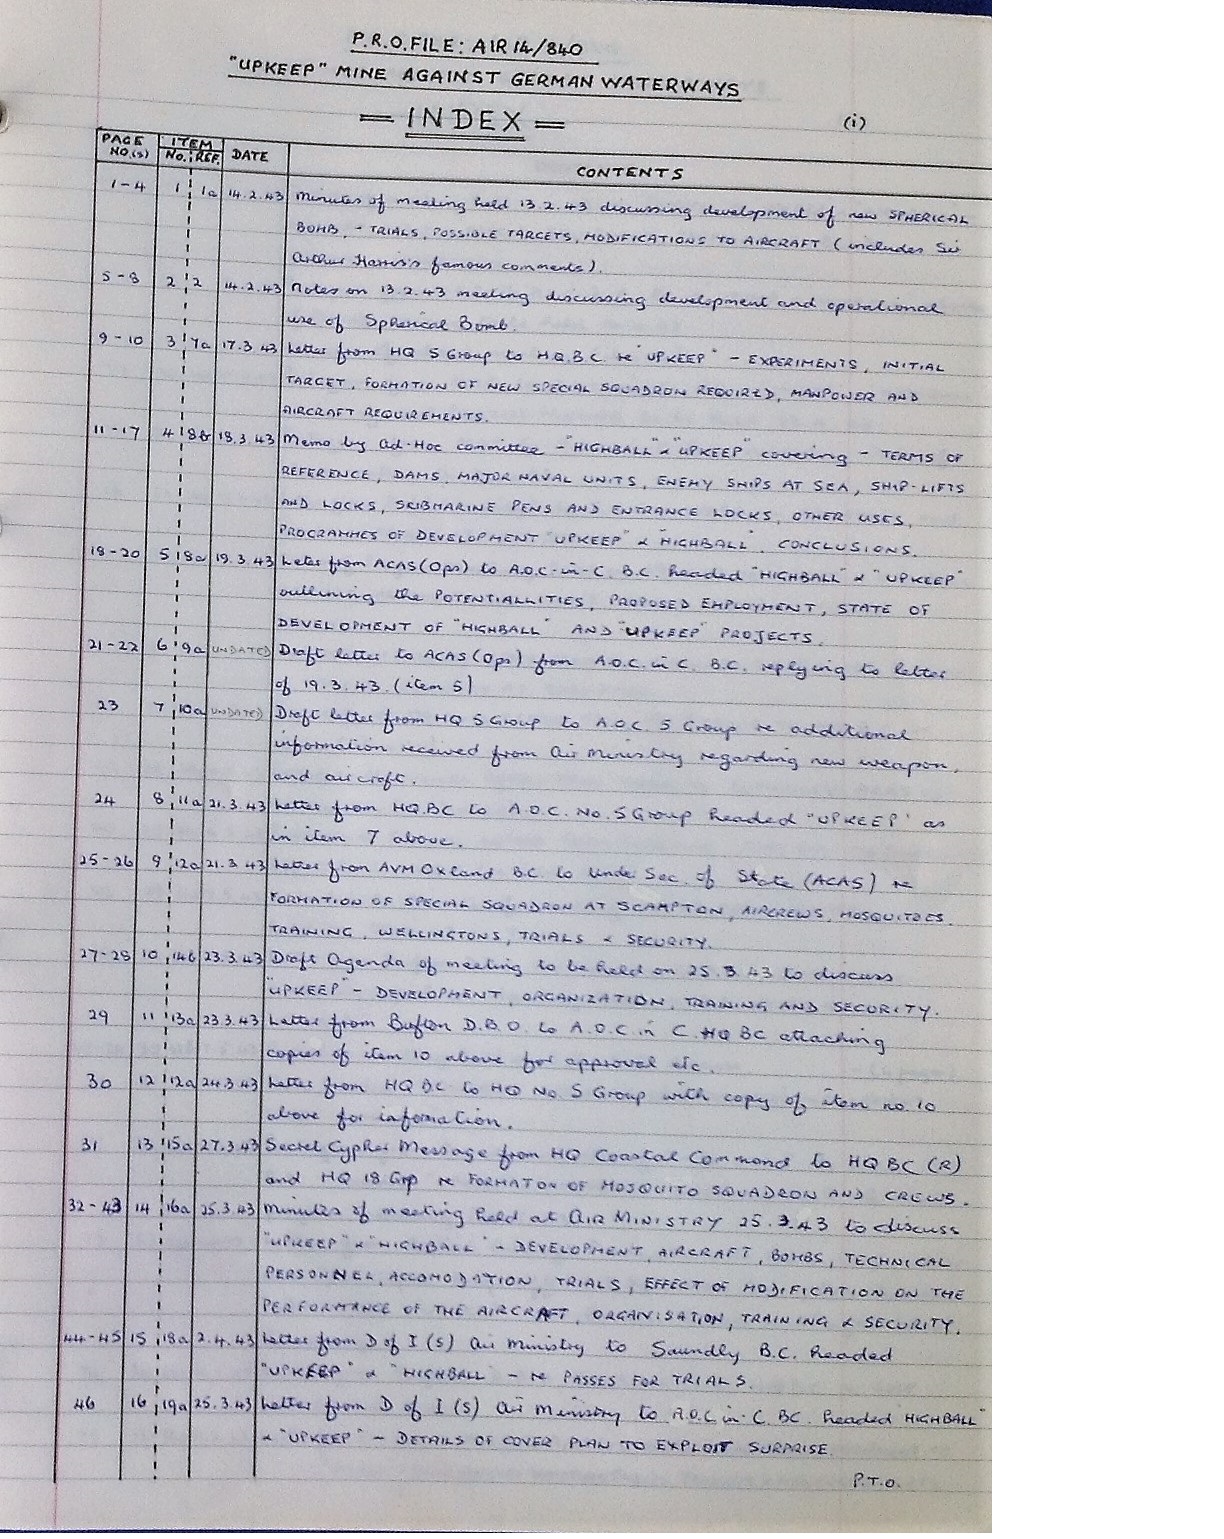 P.R.O. FILE: AIR 14/840
"UPKEEP" MINE AGAINST GERMAN WATERWAYS
= INDEX =
(i)
PAGE NO.(s) ITEM No. REF. DATE CONTENTS
1-4 1 1a 14.2.43 Minutes of meeting held 13.2.43 discussing development of new SPHERICAL
BOMB, - TRIALS, POSSIBLE TARGETS, MODIFICATIONS TO AIRCRAFT (includes Sir
Arthur Harris's famous comments).
5-8 2 2 14.2.43 Notes on 13.2.43 meeting discussing development and operational
use of Spherical Bomb.
9-10 3 7a 17.3.43 Letter from HQ 5 Group to H.Q.B.C re "UPKEEP" - EXPERIMENTS, INITIAL
TARGET, FORMATION OF NEW SPECIAL SQUADRON REQUIRED, MANPOWER AND
AIRCRAFT REQUIREMENTS.
11-17 4 8b 18.3.43 Memo by Ad-Hoc committee - "HIGHBALL" & "UPKEEP" covering - TERMS OF
REFERENCE, DAMS, MAJOR NAVAL UNITS, ENEMY SHIPS AT SEA, SHIP-LIFTS
AND LOCKS, SUBMARINE PENS AND ENTRANCE LOCKS, OTHER USES,
PROGRAMMES OF DEVELOPMENT "UPKEEP" & "HIGHBALL". CONCLUSIONS.
18-20 5 8a 19.3.43 Letter from ACAS (Ops) to A.O.C-in-C B.C. headed "HIGHBALL" & "UPKEEP"
outlining the POTENTIALLITIES, PROPOSED EMPLOYMENT, STATE OF
DEVELOPMENT OF "HIGHBALL" AND "UPKEEP" PROJECTS.
21-22 6 9a UNDATED Draft letter to ACAS (Ops) from A.O.C. in C. B.C. replying to letter
of 19.3.43. (item 5)
23 7 10a UNDATED Draft letter from HQ 5 Group to A.O.C. 5 Group re additional
information received from Air Ministry regarding new weapon,
and aircraft.
24 8 11a 21.3.43 Letter from HQ.BC to A.O.C. No. 5 Group headed "UPKEEP" as
in item 7 above.
25-26 9 12a 21.3.43 Letter from AVM Oxland B.C to Under Sec. of State (ACAS) re
FORMATION OF SPECIAL SQUADRON AT SCAMPTON, AIRCREWS, MOSQUITOES.
TRAINING, WELLINGTONS, TRIALS & SECURITY.
27-28 10 14b 23.3.43 Draft Agenda of meeting to be held on 25.3.43 to discuss
"UPKEEP" - DEVELOPMENT, ORGANIZATION, TRAINING AND SECURITY.
29 11 13a 23.3.43 Letter from Bufton D.B.O. to A.O.C in C. HQ BC attaching
copies of item 10 above for approval etc.
30 12 12a 24.3.43 Letter from HQ BC to HQ No. 5 Group with copy of item no. 10
above for information.
31 13 15a 27.3.43 Secret Cypher Message from HQ Coastal Command to HQ BC (R)
and HQ 18 Grp re FORMATON OF MOSQUITO SQUADRON AND CREWS.
32-43 14 16a 25.3.43 Minutes of meeting held at AIR MINISTRY 25.3.43 to discuss
"UPKEEP" & "HIGHBALL" - DEVELOPMENT, AIRCRAFT, BOMBS, TECHNICAL
PERSONNEL, ACCOMODATION, TRIALS, EFFECT OF MODIFICATION ON THE
PERFORMANCE OF THE AIRCRAFT, ORGANISATION, TRAINING & SECURITY.
44-45 15 18a 2.4.43 Letter from D of I (S) Air Ministry to Saundly B.C. headed
"UPKEEP" & "HIGHBALL" - re PASSES FOR TRIALS.
46 16 19a 25.3.43 Letter from D of I (S) Air Ministry to A.O.C in C. BC. headed HIGHBALL"
& "UPKEEP" - DETAILS OF COVER PLAN TO EXPLOIT SURPRISE.
P.T.O.